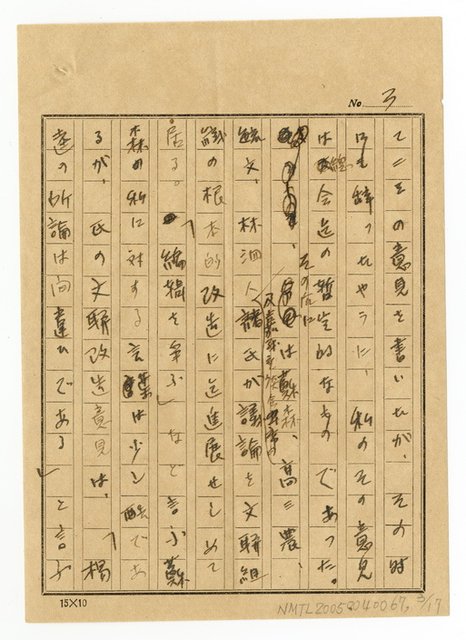 No. 3
てこその意見を書いたが、その時
にも辞つたやうに、私のその意見
は 総会迄の暫定的なものであつた。
その后に 、 は蘇森、高三農、
毓文、林泗人諸氏が議論を文聯組
織の根本的改造に迄進展せしめて
居る。「編輯を争ふ」など言ふ蘇
森の私に対する言葉は少し酷であ
るが、氏の文聯改造意見は、「楊
逵の所論は間違ひである」と言ふ
15×10
NMTL20050040067, 3/17